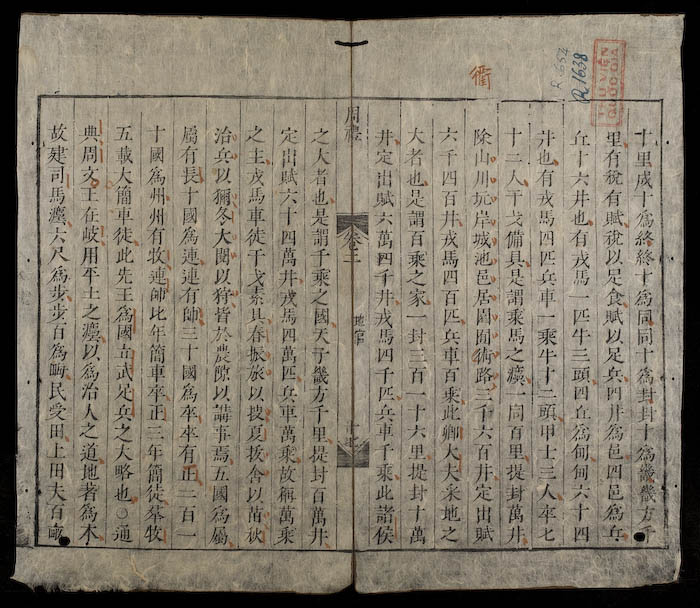 R.552
R.1638
THƯ VIỆN
QUỐC GIA
衝
十里成十爲終終十爲同同十爲封封十爲畿畿方千
里有稅有賦稅以足食賦以足兵四井爲邑四邑爲丘
丘十六井也有戎馬一匹牛三頭四丘爲甸甸六十四
井也有戎馬四匹兵車一乘牛十二頭甲士三人卒七
十二人干戈備具是謂乘馬之灋一同百里提封萬井
除山川坑岸城池邑居園囿術路三千六百井定出賦
六千四百井戎馬四百匹兵車百乘此卿大夫采地之
大者也是謂百乘之家一封三百一十六里提封十萬
井定出賦六萬四千井戎馬四千匹兵車千乘此諸侯
周禮
卷三
地官
之大者也是謂千乘之國天子畿方千里提封百萬井
定出賦六十四萬井戎馬四萬匹兵車萬乘故稱萬乘
之主戎馬車徒干戈素具春振旅以搜夏拔舍以苗秋
治兵以獮冬大閱以狩皆於農隙以講事焉五國爲屬
屬有長十國爲連連有帥三十國爲卒卒有正二百一
十國爲州州有牧連帥比年簡車卒正三年簡徒羣牧
五載大簡車徒此先王爲國立武足兵之大略也○通
典周文王在岐用平土之灋以爲治人之道地著爲木
故建司馬灋六尺爲步步百爲畮民受田上田夫百畮